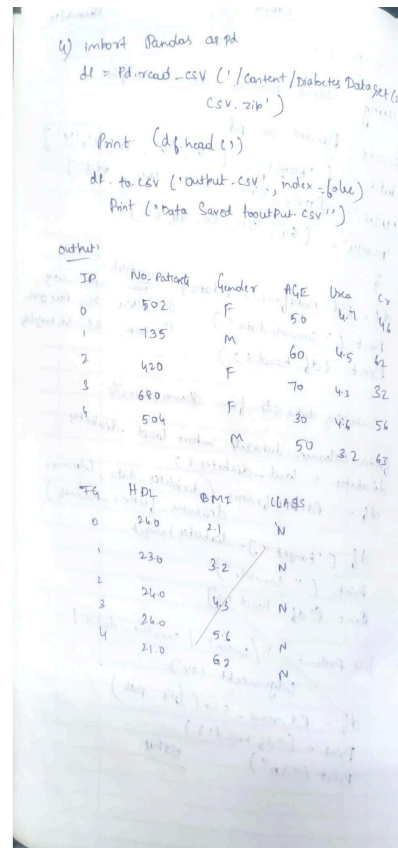 4) import Pandas as pd
df = Pd.read_csv ('/content/Diabetes Dataset(
csv.zip')
Print (df.head())
df.to_csv ('output.csv', index=false)
Print ("Data Saved tooutPut.csv")
output:
ID No_Patients Gender AGE Urea Cr
0 502 F 50 4.7 46
1 735 M 60 4.5 62
2 420 F 70 4.3 32
3 680 F 30 4.6 56
4 504 M 50 3.2 63
HDL BMI CLASS
0 24.0 2.1 N
1 23.0 3.2 N
2 24.0 4.3 N
3 24.0 5.6 N
4 21.0 6.2 N